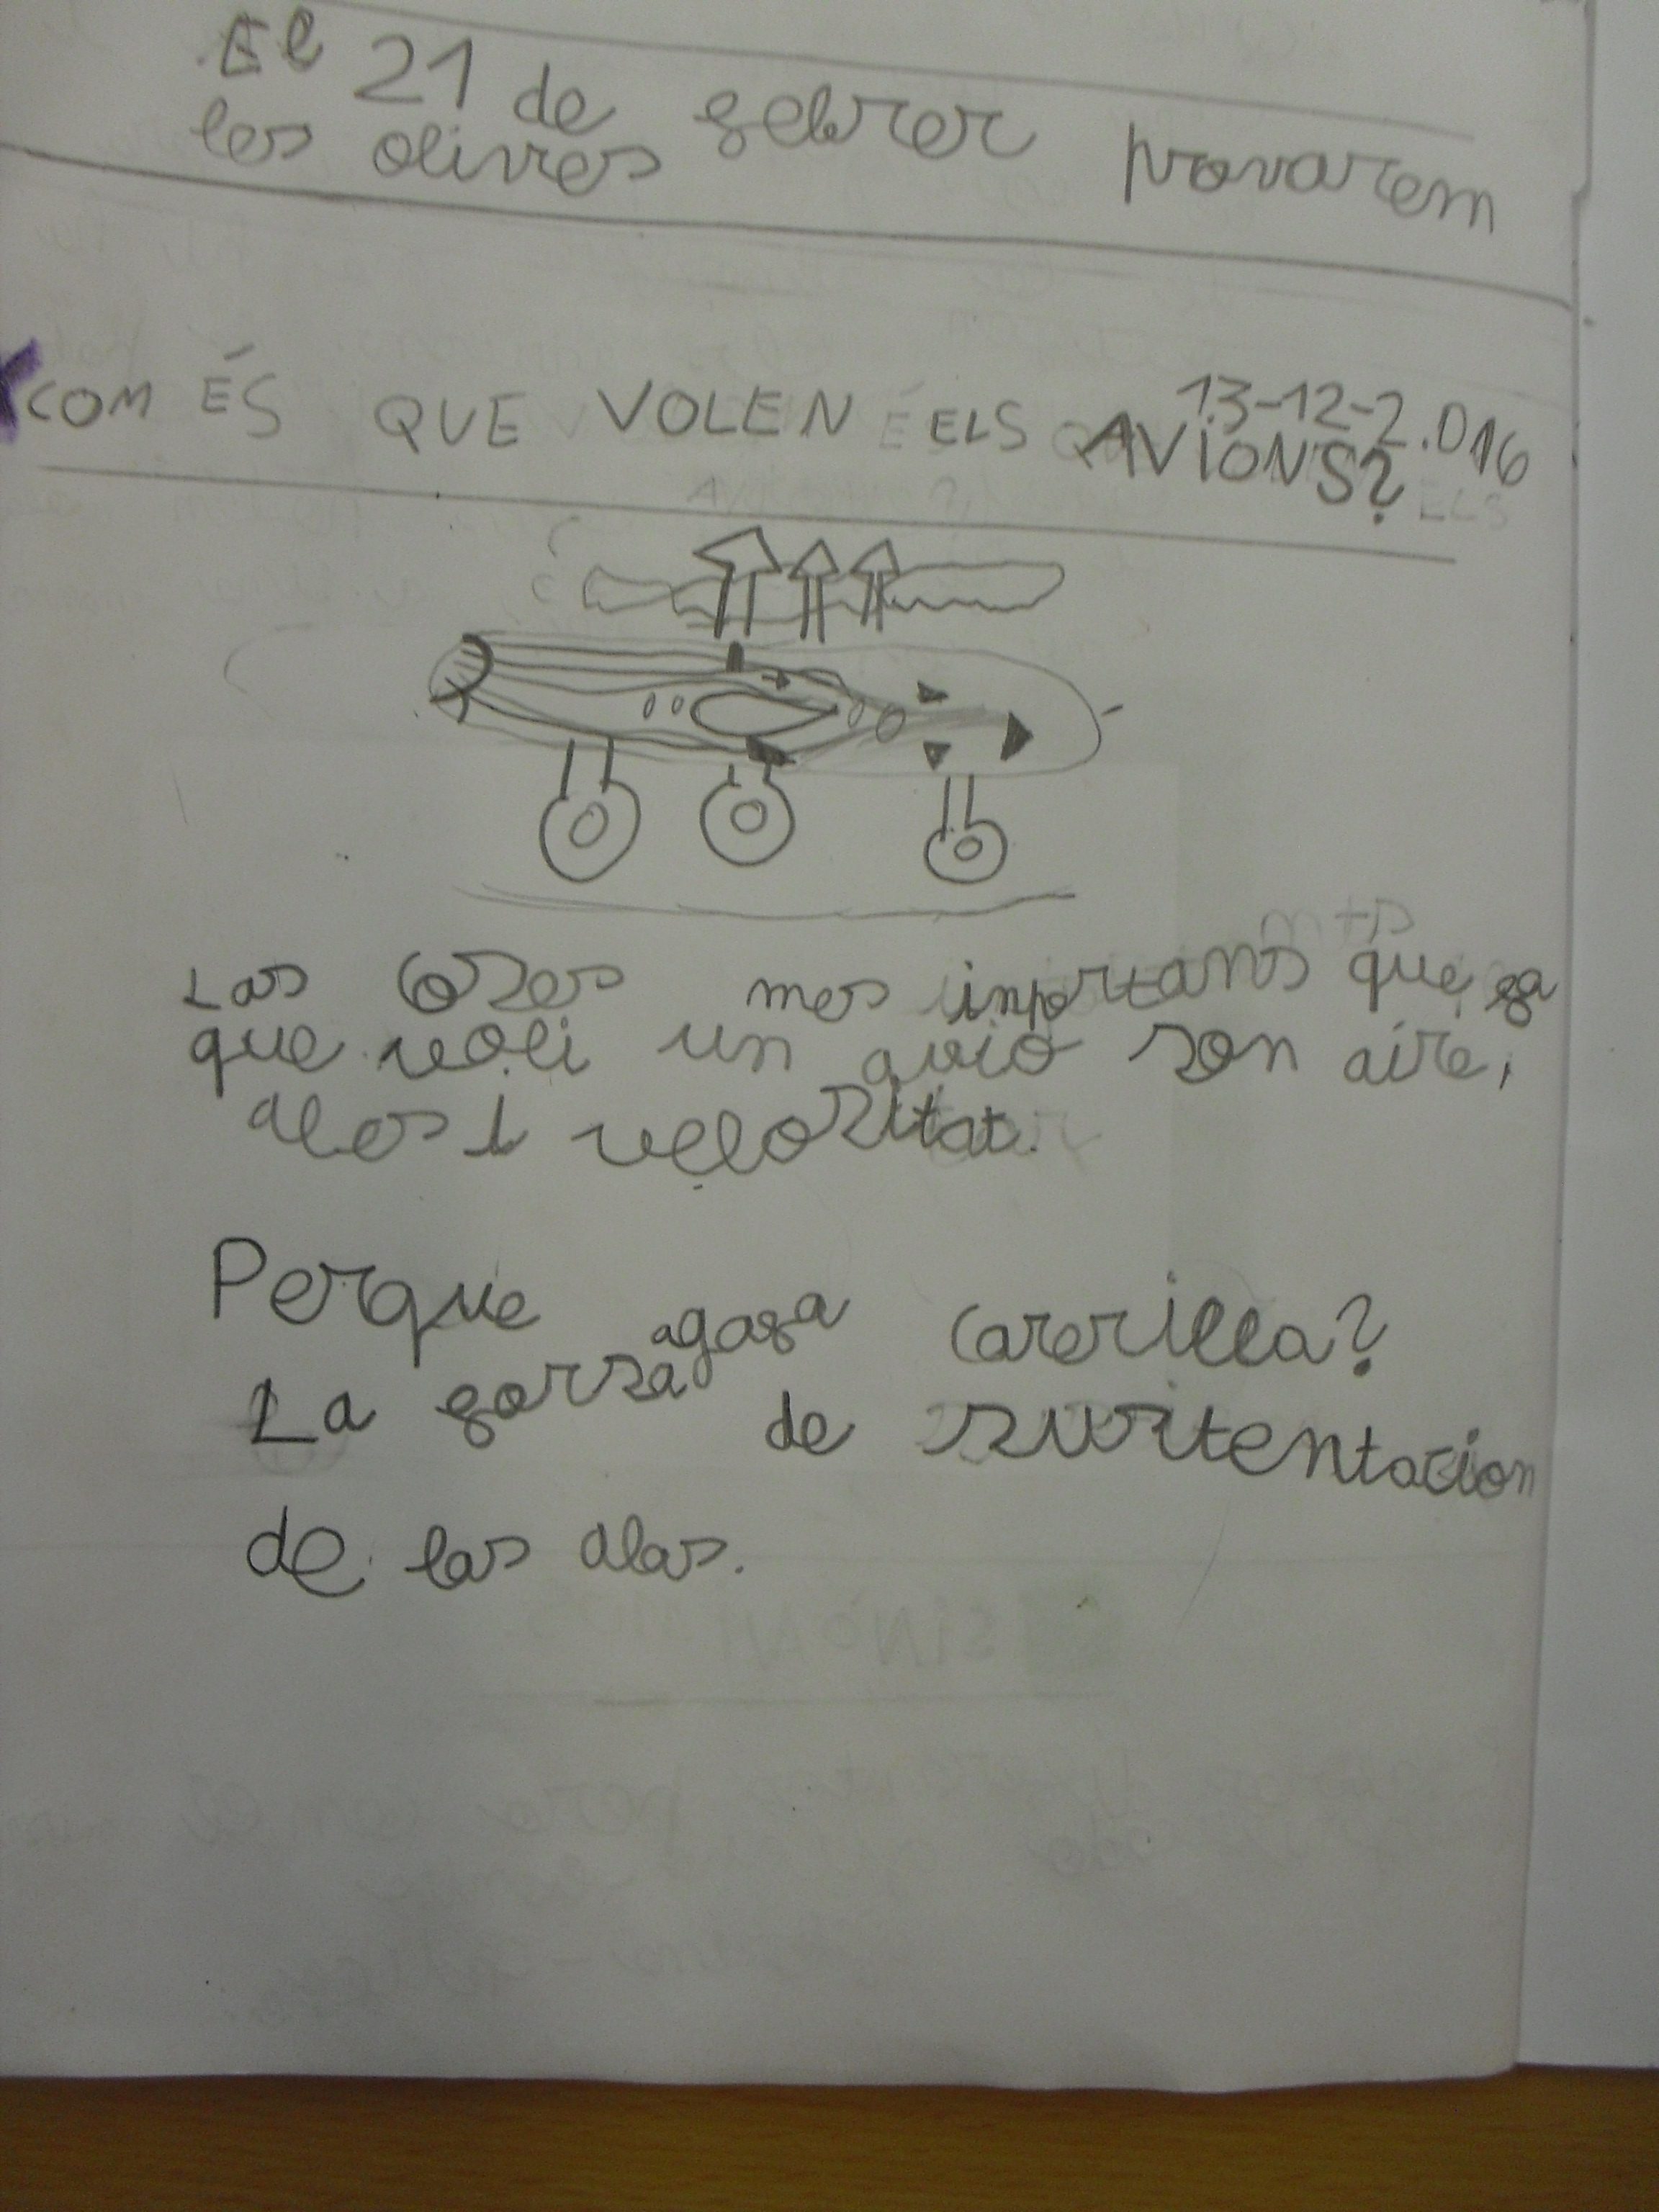 El 21 de febrer provarem
les olives
13-12-2.016
COM ÉS QUE VOLEN ELS AVIONS?
Las coses mes inportans que fa
que voli un avio son aire,
ales i velositat.
Perque agafa carerilla?
La forsa de surtentacion
de las alas.